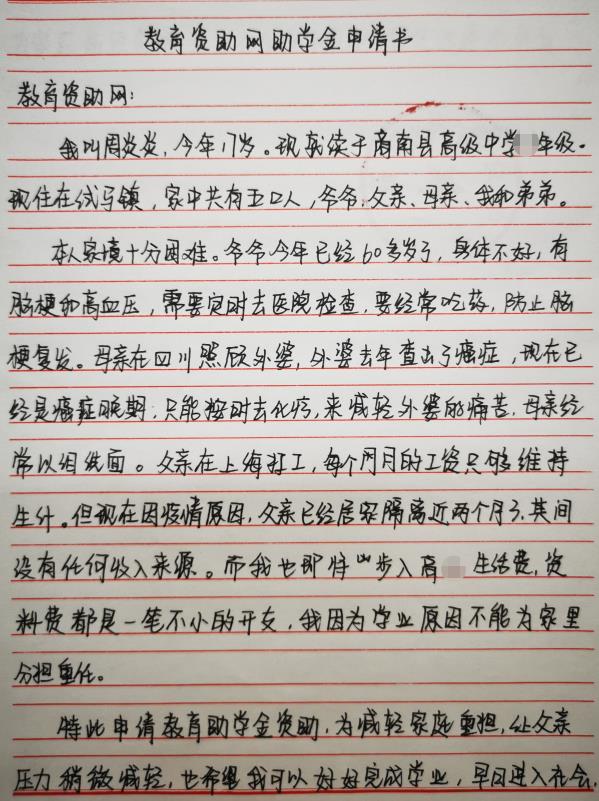 教育资助网助学金申请书
教育资助网:
我叫周炎炎,今年17岁。现就读于商南县高级中学年级.
现住在试马镇,家中共有五口人,爷爷、父亲、母亲、我和弟弟。
本人家境十分困难。爷爷今年已经60多岁了,身体不好,有
脑梗和高血压,需要定时去医院检查,要经常吃药,防止脑
梗复发。母亲在四川照顾外婆,外婆去年查出了癌症,现在已
经是癌症晚期,只能按时去化疗,来减轻外婆的痛苦,母亲经
常以泪洗面。父亲在上海打工,每个月的工资只够维持
生计。但现在因疫情原因,父亲已经居家隔离近两个月了,其间
没有任何收入来源。而我也即将步入高 生活费,资
料费都是一笔不小的开支,我因为学业原因不能为家里
分担重任。
特此申请教育助学金资助,为减轻家庭重担,让父亲
压力稍微减轻,也希望我可以好好完成学业,早日进入社会,